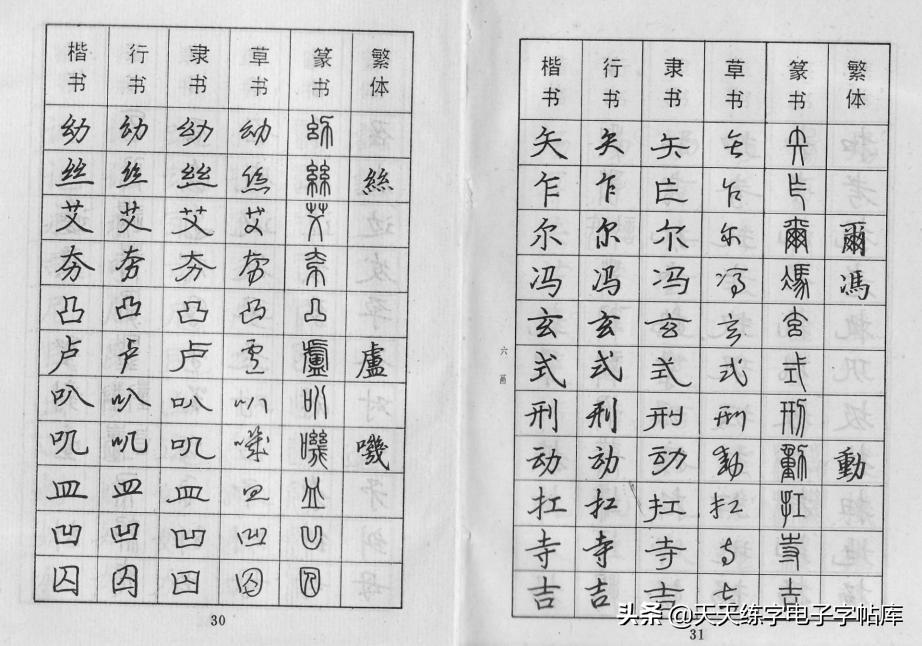 楷书 行书 隶书 草书 篆书 繁体
幼 幼 幼 幼 幼
丝 丝 丝 丝 絲 絲
艾 艾 艾 艾 艾
夯 夯 夯 夯 夯
凸 凸 凸 凸 凸
卢 卢 卢 卢 盧 盧
叭 叭 叭 叭 叭
叽 叽 叽 嘰 嘰 嘰
皿 皿 皿 皿 皿
凹 凹 凹 凹 凹
囚 囚 囚 囚 囚
30
楷书 行书 隶书 草书 篆书 繁体
矢 矢 矢 矢 矢
乍 乍 乍 乍 乍
尔 尔 尔 尔 爾 爾
冯 冯 冯 冯 馮 馮
玄 玄 玄 玄 玄
六画
式 式 式 式 式
刑 刑 刑 刑 刑
动 动 动 動 動 動
扛 扛 扛 扛 扛
寺 寺 寺 寺 寺
吉 吉 吉 吉 吉
31
头条 @天天练字电子字帖库